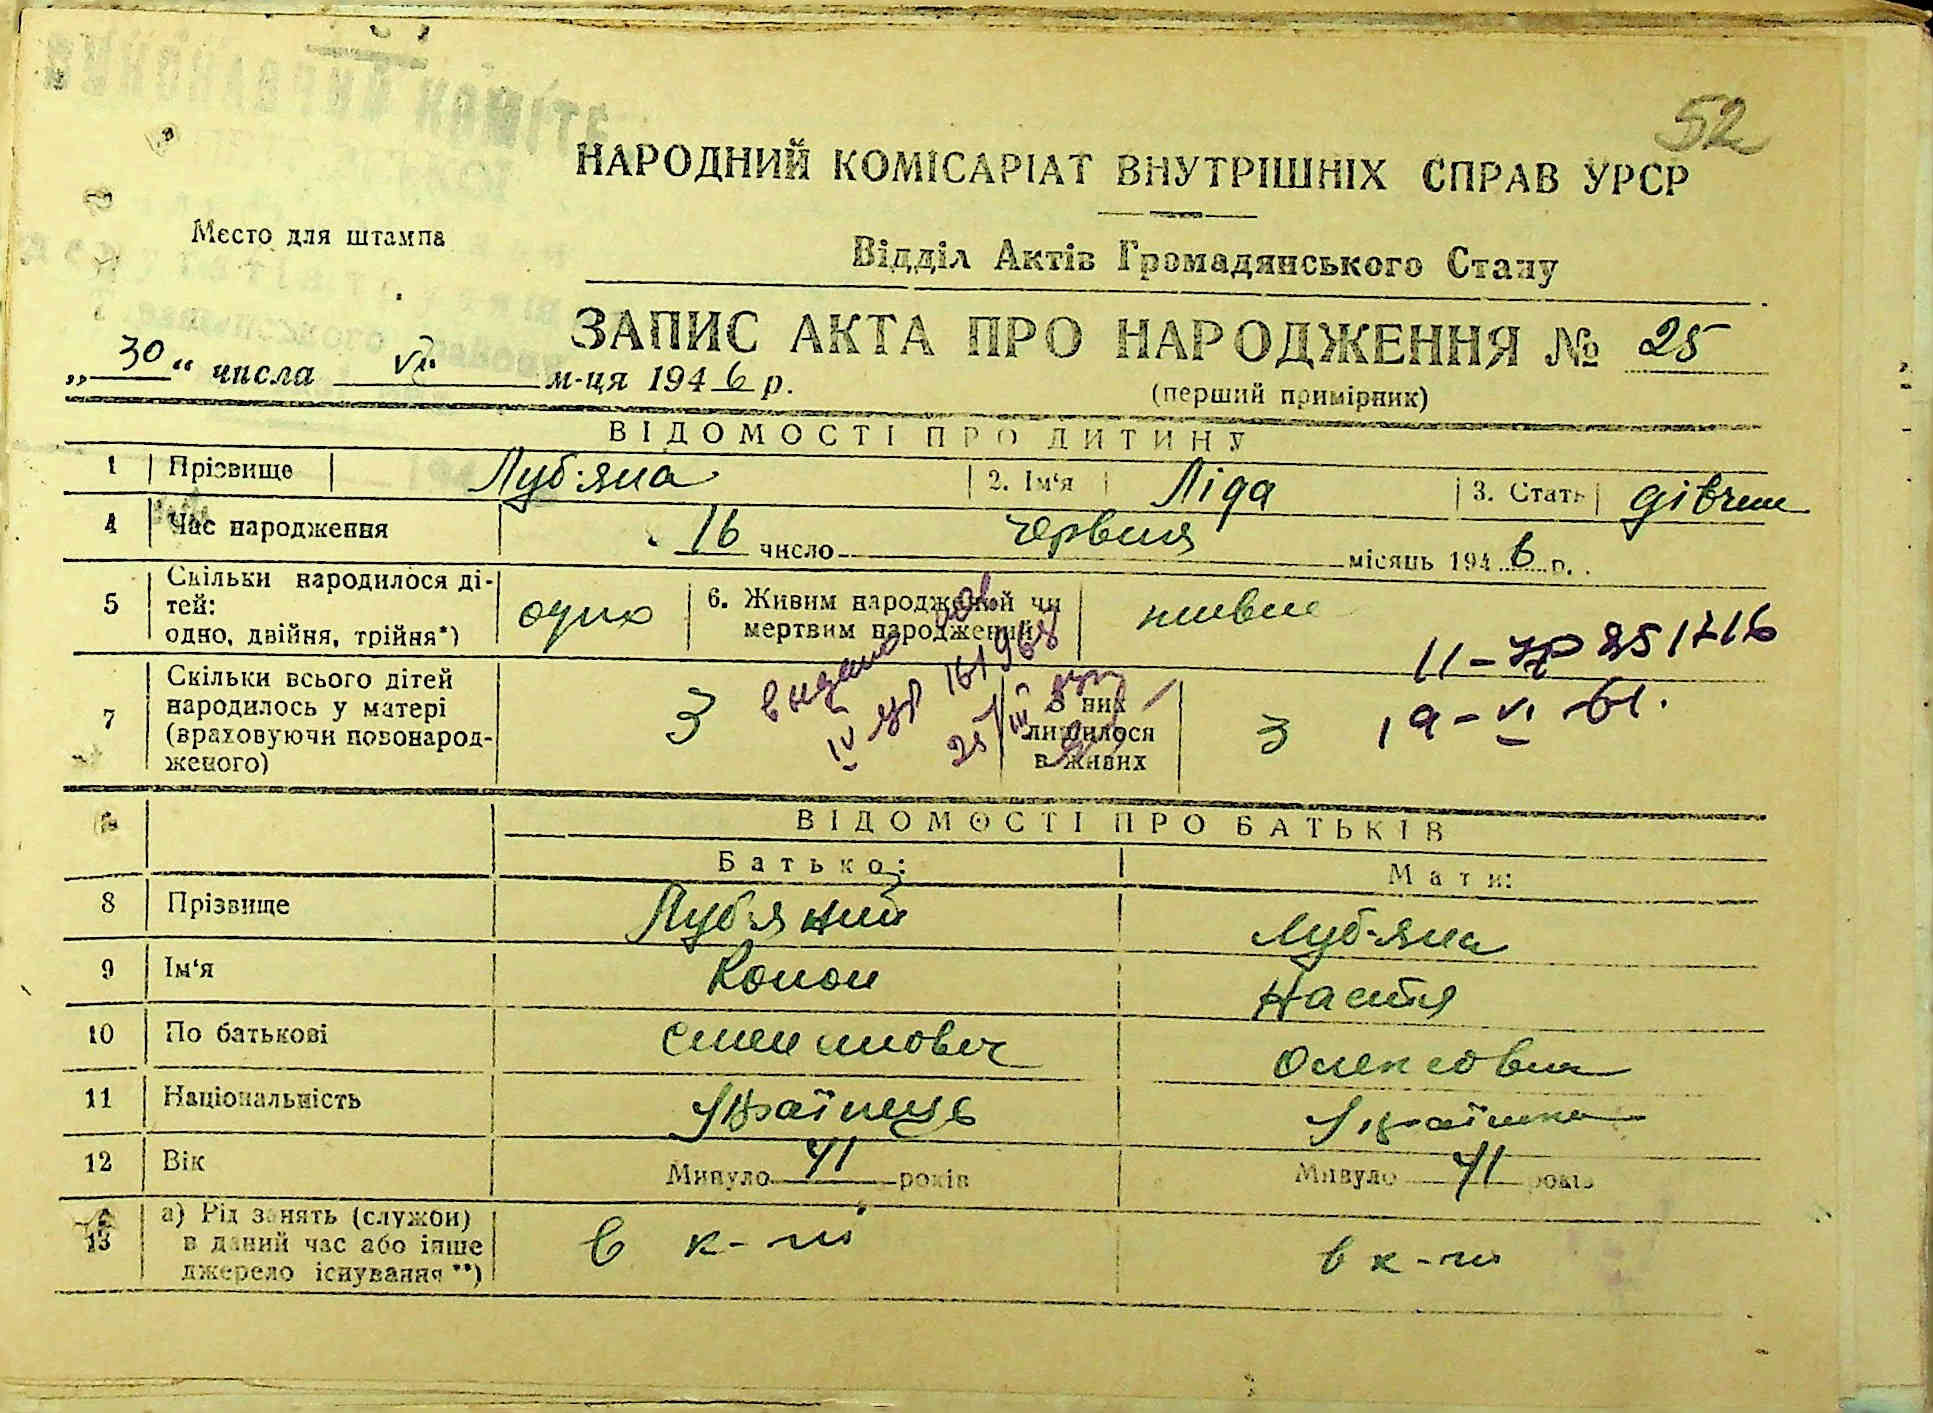 52
НАРОДНИЙ КОМІСАРІАТ ВНУТРІШНІХ СПРАВ УРСР
Место для штампа
Відділ Актів Громадянського Стану
ЗАПИС АКТА ПРО НАРОДЖЕННЯ № 25
„30“ числа VI м-ця 1946 р.
(перший примірник)
ВІДОМОСТІ ПРО ДИТИНУ
1 Прізвище Луб'яна 2. Ім‘я Ліда 3. Стать дівчин
4 Час народження 16 число червня місяць 1946 р.
5 Скільки народилося ді-
тей:
одно, двійня, трійня*) одно 6. Живим народжений чи
мертвим народжений живие
видано пов
IV УР 161968
25/III
II-УР 251716
19-VI-61.
7 Скільки всього дітей
народилось у матері
(враховуючи новонарод-
женого) 3 З них
лишилося
в живих 3
ВІДОМОСТІ ПРО БАТЬКІВ
Батько: Мати:
8 Прізвище Луб'яний Луб'яна
9 Ім‘я Конон Настя
10 По батькові Семенович Олексовна
11 Національність Українець Українка
12 Вік Минуло 41 років Минуло 41 років
13 а) Рід занять (служби)
в даний час або інше
джерело існування **) в к-пі в к-пі